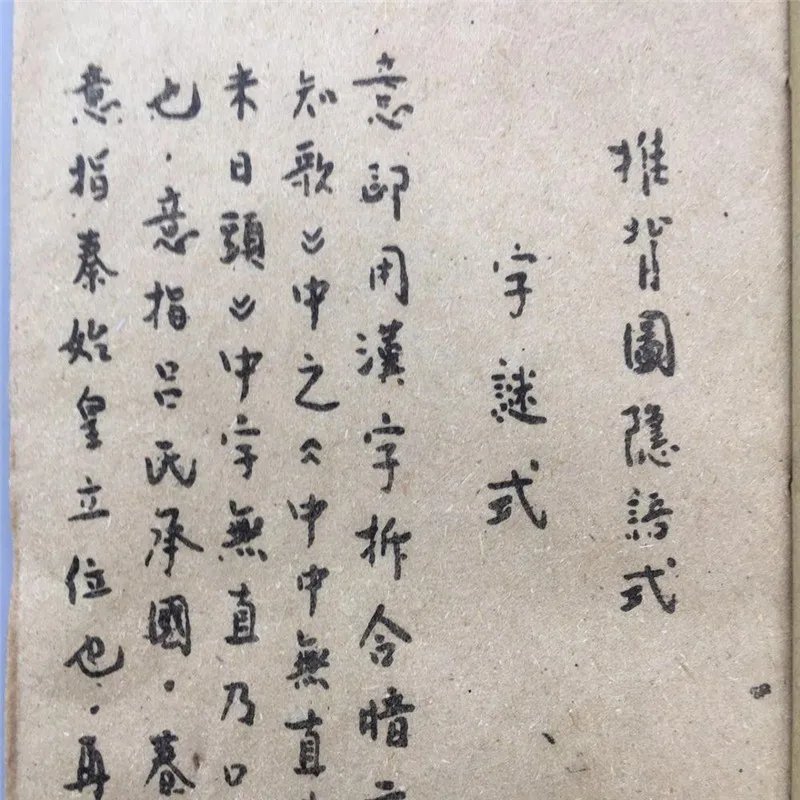 推背圖隱語式
字謎式
意即用漢字拆合暗
知歌》中之《中中無直
未日頭》中字無直乃口
也．意指呂氏承國．春
意指秦始皇立位也．再